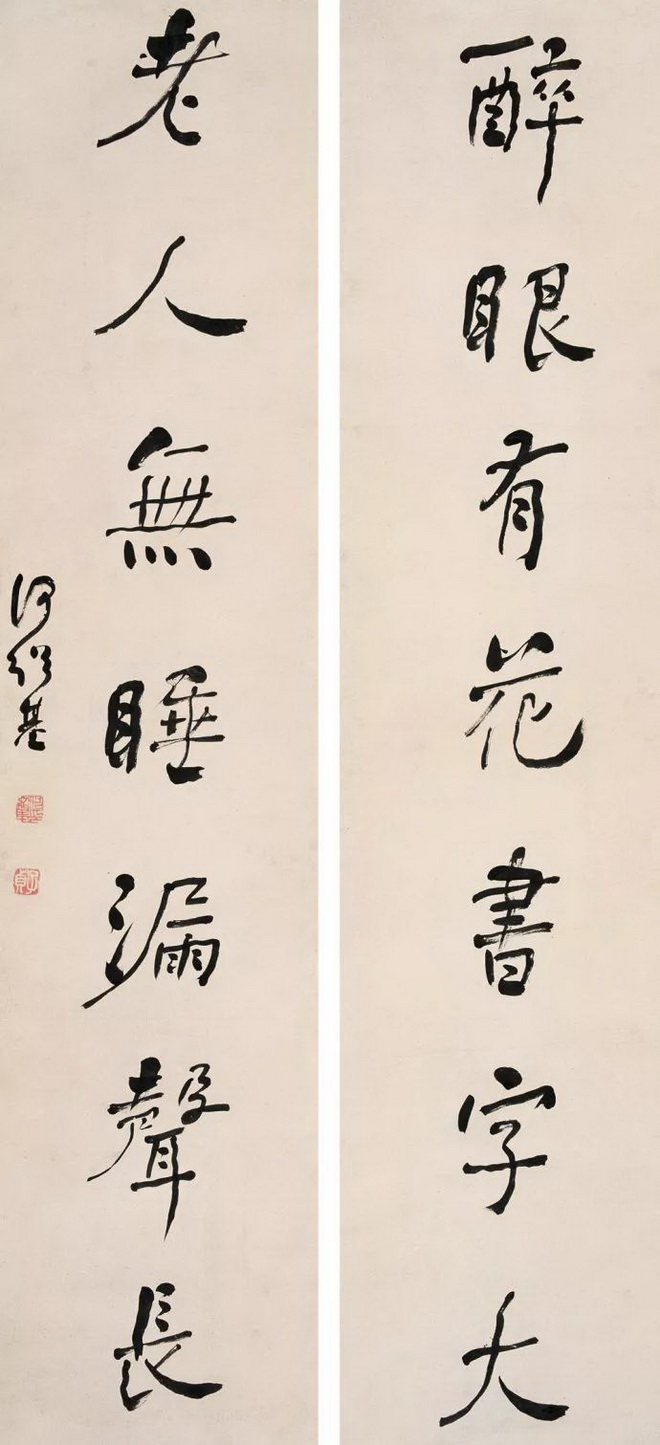 醉眼有花書字大
老人無睡漏聲長
何紹基